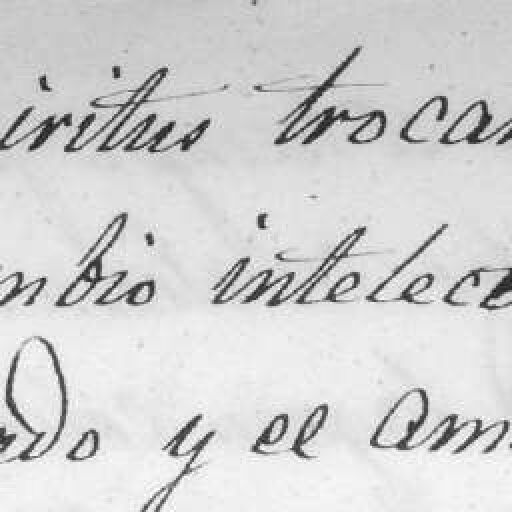 iritus trocan
mbio intelect
rdo y el am